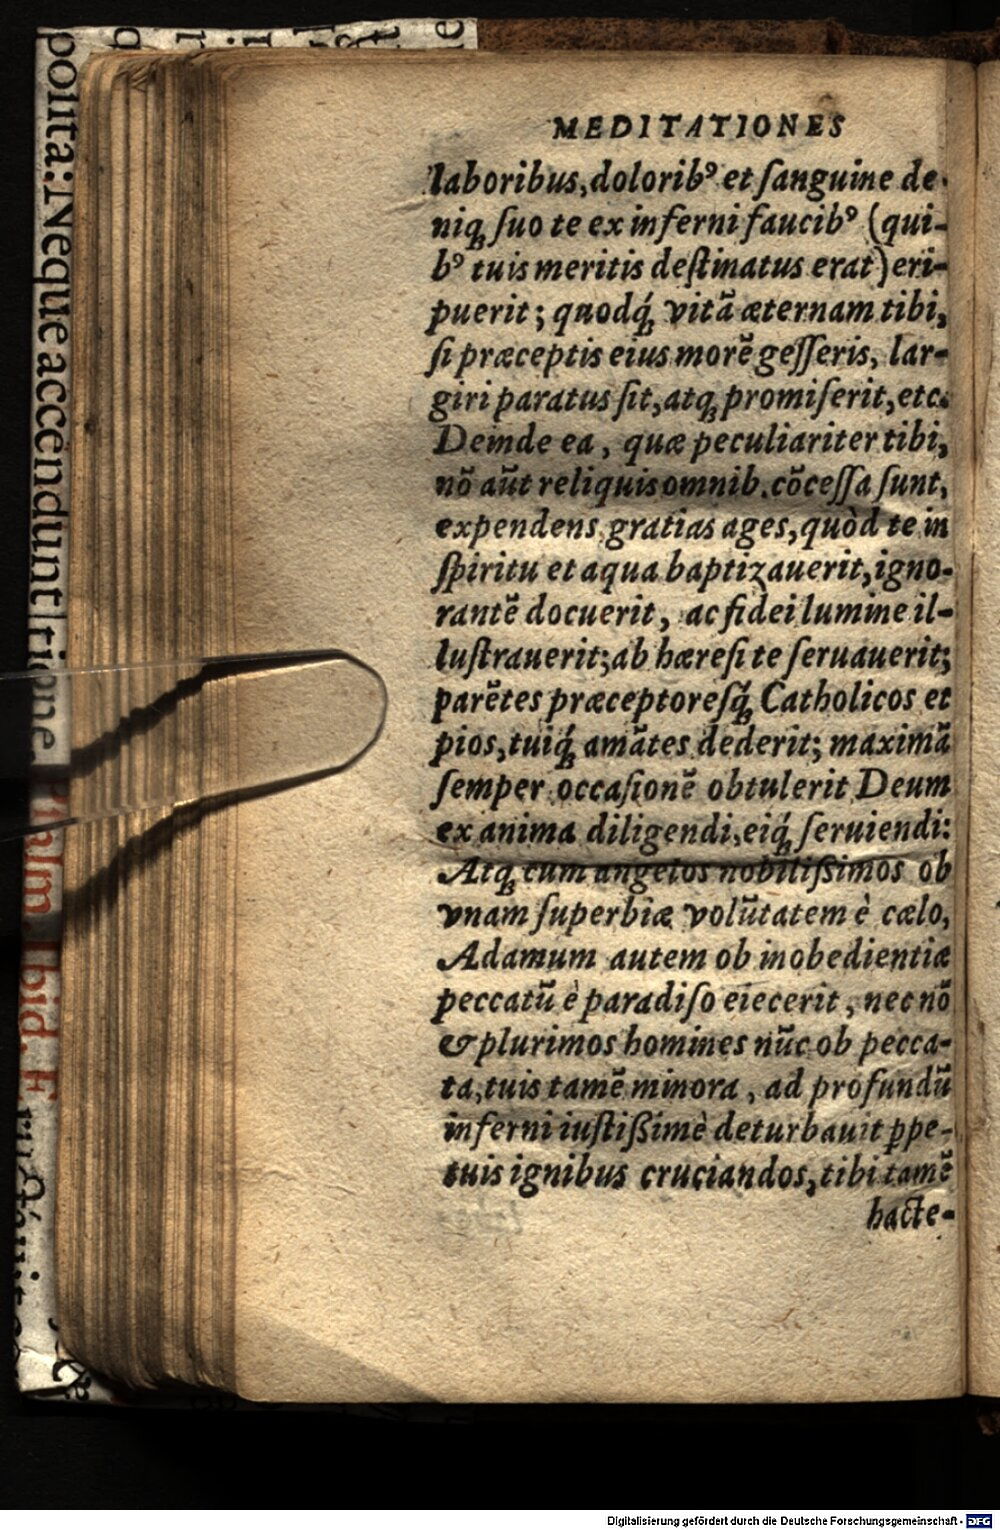 MEDITATIONES
laboribus, doloribꝰ et ſanguine de-
niq; ſuo te ex inferni faucibꝰ (qui-
bꝰ tuis meritis deſtinatus erat) eri-
puerit; quodq́; vitã æternam tibi,
ſi præceptis eius morẽ geſſeris, lar-
giri paratus ſit, atq; promiſerit, etc.
Deinde ea, quæ peculiariter tibi,
nõ aũt reliquis omnib. cõceſſa ſunt,
expendens gratias ages, quòd te in
ſpiritu et aqua baptizauerit, igno-
rantẽ docuerit, ac fidei lumine il-
luſtrauerit; ab hæreſi te ſeruauerit;
parẽtes præceptoreſq́; Catholicos et
pios, tuiq́; amãtes dederit; maximã
ſemper occaſionẽ obtulerit Deum
ex anima diligendi, eiq́; ſeruiendi:
Atq; cum angelos nobiliſsimos ob
vnam ſuperbiæ volũtatem è cælo,
Adamum autem ob inobedientiæ
peccatũ è paradiſo eiecerit, nec nõ
& plurimos homines nũc ob pecca-
ta, tuis tamẽ minora, ad profundũ
inferni iuſtißimè deturbauit ꝑpe-
tuis ignibus cruciandos, tibi tamẽ
hacte-
polita: Neque accendunt
Pſalm. Ibid. F.
Digitalisierung gefördert durch die Deutsche Forschungsgemeinschaft - DFG